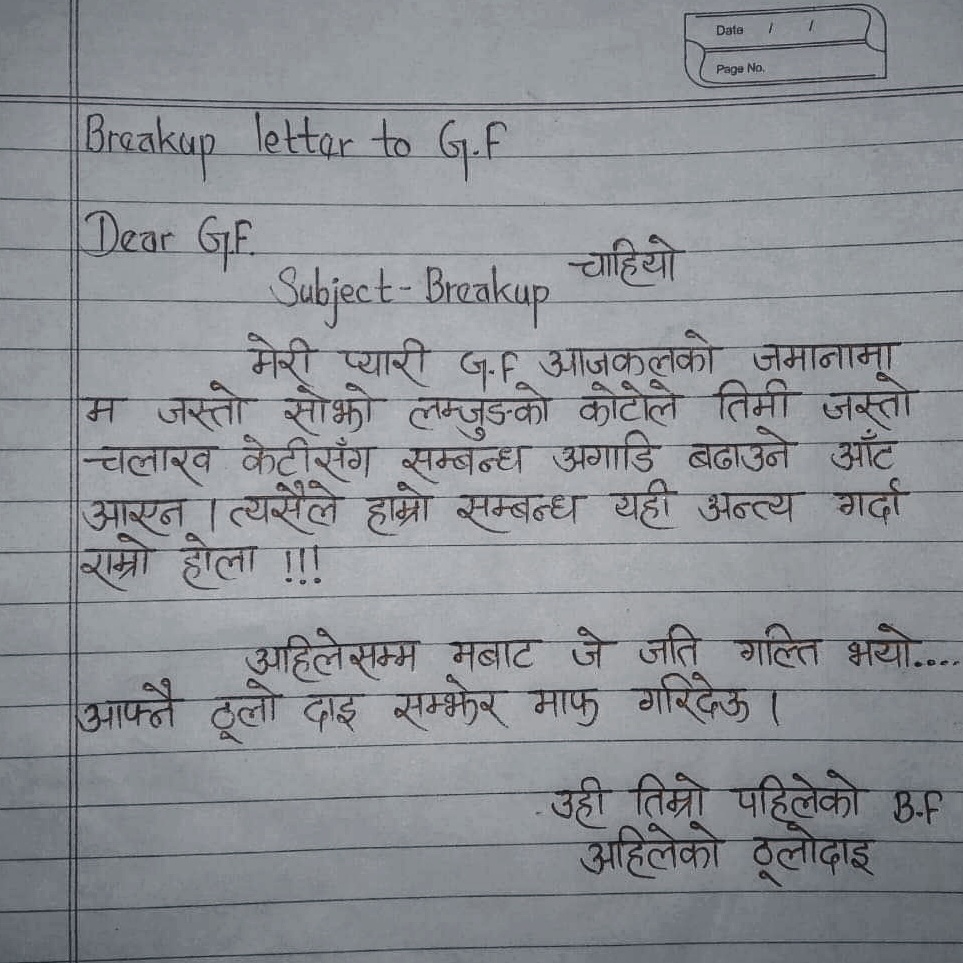 Date / /
Page No.
Breakup letter to G.F
Dear G.F.
Subject - Breakup चाहियो
मेरी प्यारी G.F आजकलको जमानामा
म जस्तो सोझो लम्जुङको केटोले तिमी जस्तो
चलाख केटीसँग सम्बन्ध अगाडि बढाउने आँट
आएन । त्यसैले हाम्रो सम्बन्ध यही अन्त्य गर्दा
राम्रो होला !!!
अहिलेसम्म मबाट जे जति गल्ति भयो....
आफ्नै ठूलो दाइ सम्झेर माफ गरिदेऊ ।
उही तिम्रो पहिलेको B.F
अहिलेको ठूलोदाइ